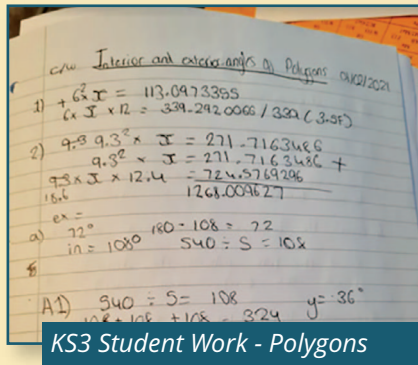 c/w Interior and exterior angles of Polygons 01/02/2021
1) + 6² x π = 113.0973355
6 x π x 12 = 339.2920066 / 339 (3.SF)
2) 9.3 9.3² x π = 271.7163486
9.3² x π = 271.7163486 +
x π x 12.4 = 724.5769296
18.6 1268.009627
ex =
a) 72° 180 - 108 = 72
in = 108° 540 ÷ 5 = 108
A1) 540 ÷ 5 = 108 y = 36°
108 + 108 + 108 = 324
KS3 Student Work - Polygons